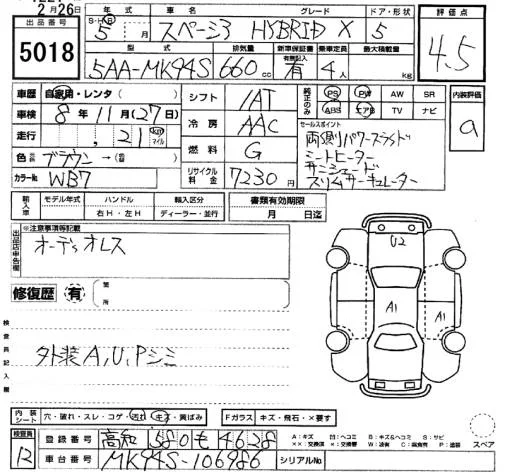 2月26日
出品番号 5018
年式 S・H・R 5年 月
車名 スペーシア
グレード HYBRID X
ドア・形状 5
評価点 4.5
型式 5AA-MK94S
排気量 660 cc
新車保証書 有無記入 有
乗車定員 4人
最大積載量 kg
車歴 自家用・レンタ( )
車検 8年11月(27日)
走行 ,21 km マイル
色 ブラウン →(色替)
カラーNo. WB7
シフト IAT
冷房 AAC
燃料 G
リサイクル料金 7230円
純正のみ PS PW AW SR
ABS エアB TV ナビ
セールスポイント
両側パワースライド
シートヒーター
サーシェード
スリムサーキュレーター
内装評価 a
輸入車 モデル年式 ハンドル 右H・左H 輸入区分 ディーラー・並行
書類有効期限 月 日迄
出品店申告欄 ※注意事項等記載
オーディオレス
修復歴 有 箇所
検査員記入欄
外装A,U,Pシミ
U2
A1
A1
内装シート 穴・破れ・スレ・コゲ・汚れ・キズ・黄ばみ
Fガラス キズ・飛石・×要す
スペア
検査員 12
登録番号 高知 580 も 4628
車台番号 MK94S-106986
シリアルNo.
A:キズ U:ヘコミ B:キズ&ヘコミ S:サビ
××:交換済 X:要交換 W:波有 C:腐食 P:塗装